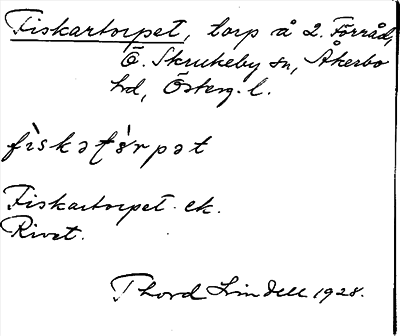 Fiskartorpet, torp å L. Förråd,
Ö. Skrukeby sn, Åkerbo
hd, Österg. l.
fìskaʈórpət
Fiskartorpet. ek.
Rivet.
Thord Lindell 1928.